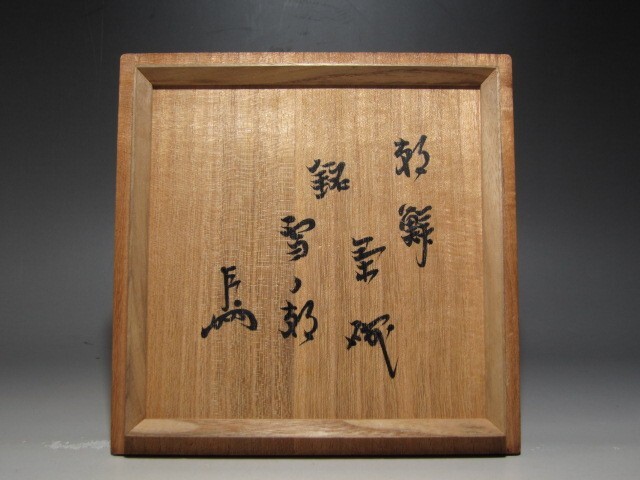 朝鮮
茶碗
銘
雪ノ朝